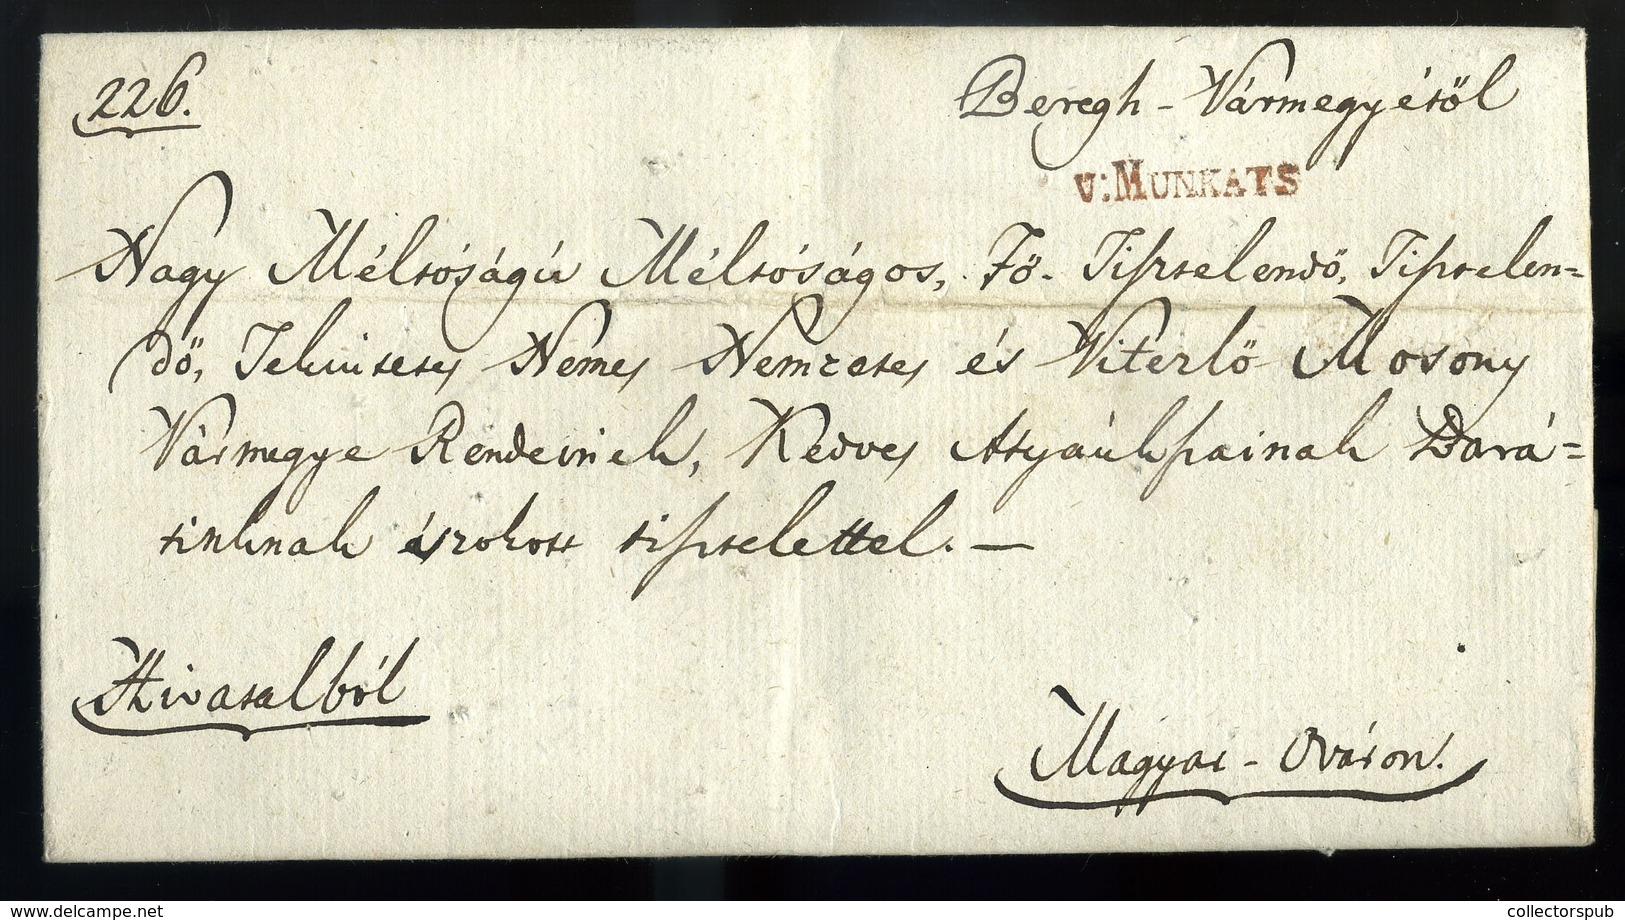 226.
Beregh-Vármegyétől
v:MUNKATS
Nagy Méltóságú Méltóságos, Fő-Tisztelendő, Tisztelen=
dő, Tekintetes Nemes Nemzetes és Vitézlő Mosony
Vármegye Rendeinek, Kedves Attyánkfiainak Bará=
tinknak szokott tisztelettel.—
Hivatalból
Magyar-Ováron.
https://www.delcampe.net
collectorspub